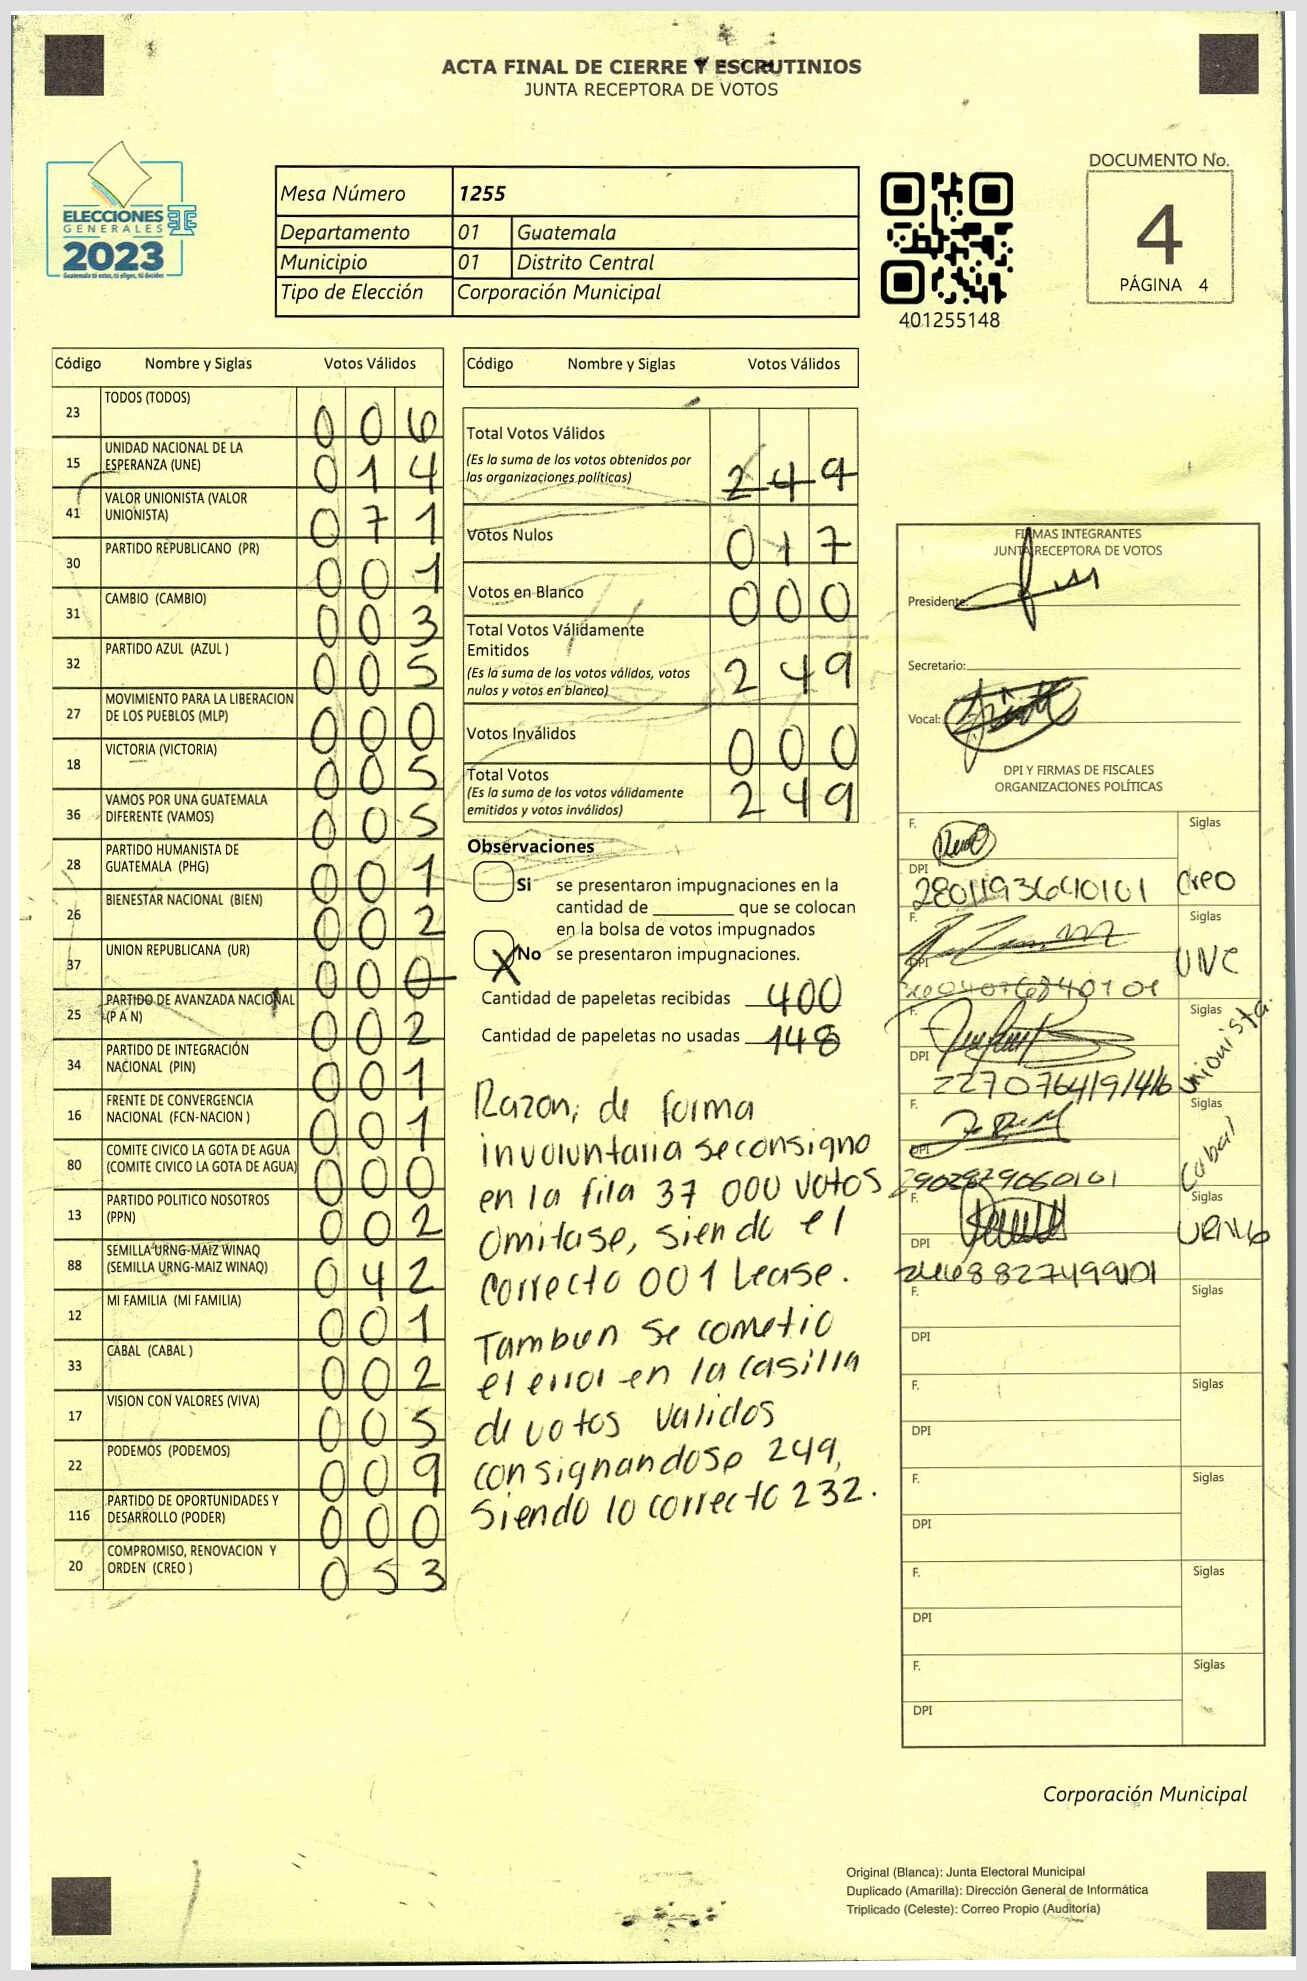 ACTA FINAL DE CIERRE Y ESCRUTINIOS
JUNTA RECEPTORA DE VOTOS
ELECCIONES
GENERALES
2023
Guatemala tú estas, tú eliges, tú decides
Mesa Número 1255
Departamento 01 Guatemala
Municipio 01 Distrito Central
Tipo de Elección Corporación Municipal
401255148
DOCUMENTO No.
4
PÁGINA 4
Código Nombre y Siglas Votos Válidos
23 TODOS (TODOS) 0 0 6
15 UNIDAD NACIONAL DE LA ESPERANZA (UNE) 0 1 4
41 VALOR UNIONISTA (VALOR UNIONISTA) 0 7 1
30 PARTIDO REPUBLICANO (PR) 0 0 1
31 CAMBIO (CAMBIO) 0 0 3
32 PARTIDO AZUL (AZUL ) 0 0 5
27 MOVIMIENTO PARA LA LIBERACION DE LOS PUEBLOS (MLP) 0 0 0
18 VICTORIA (VICTORIA) 0 0 5
36 VAMOS POR UNA GUATEMALA DIFERENTE (VAMOS) 0 0 5
28 PARTIDO HUMANISTA DE GUATEMALA (PHG) 0 0 1
26 BIENESTAR NACIONAL (BIEN) 0 0 2
37 UNION REPUBLICANA (UR) 0 0 0
25 PARTIDO DE AVANZADA NACIONAL (P A N) 0 0 2
34 PARTIDO DE INTEGRACIÓN NACIONAL (PIN) 0 0 1
16 FRENTE DE CONVERGENCIA NACIONAL (FCN-NACION ) 0 0 1
80 COMITE CIVICO LA GOTA DE AGUA (COMITE CIVICO LA GOTA DE AGUA) 0 0 0
13 PARTIDO POLITICO NOSOTROS (PPN) 0 0 2
88 SEMILLA URNG-MAIZ WINAQ (SEMILLA URNG-MAIZ WINAQ) 0 4 2
12 MI FAMILIA (MI FAMILIA) 0 0 1
33 CABAL (CABAL ) 0 0 2
17 VISION CON VALORES (VIVA) 0 0 5
22 PODEMOS (PODEMOS) 0 0 9
116 PARTIDO DE OPORTUNIDADES Y DESARROLLO (PODER) 0 0 0
20 COMPROMISO, RENOVACION Y ORDEN (CREO ) 0 5 3
Código Nombre y Siglas Votos Válidos
Total Votos Válidos
(Es la suma de los votos obtenidos por
las organizaciones políticas) 2 4 9
Votos Nulos 0 1 7
Votos en Blanco 0 0 0
Total Votos Válidamente
Emitidos
(Es la suma de los votos válidos, votos
nulos y votos en blanco) 2 4 9
Votos Inválidos 0 0 0
Total Votos
(Es la suma de los votos válidamente
emitidos y votos inválidos) 2 4 9
Observaciones
Si se presentaron impugnaciones en la
cantidad de ________ que se colocan
en la bolsa de votos impugnados
X No se presentaron impugnaciones.
Cantidad de papeletas recibidas 400
Cantidad de papeletas no usadas 148
Razon; de forma
involuntaria se consigno
en la fila 37 000 votos
omitase, siendo el
correcto 001 Lease.
Tambien se cometio
el error en la casilla
de votos validos
consignandose 249,
siendo lo correcto 232.
FIRMAS INTEGRANTES
JUNTA RECEPTORA DE VOTOS
Presidente:
Secretario:
Vocal:
DPI Y FIRMAS DE FISCALES
ORGANIZACIONES POLÍTICAS
F. Siglas
DPI 2801193640101 Creo
F. Siglas
DPI UNE
F. Siglas
DPI Unionista
F. Siglas
DPI Cabal
F. Siglas
DPI URNG
F. Siglas
DPI
F. Siglas
DPI
F. Siglas
DPI
F. Siglas
DPI
F. Siglas
DPI
Corporación Municipal
Original (Blanca): Junta Electoral Municipal
Duplicado (Amarilla): Dirección General de Informática
Triplicado (Celeste): Correo Propio (Auditoría)